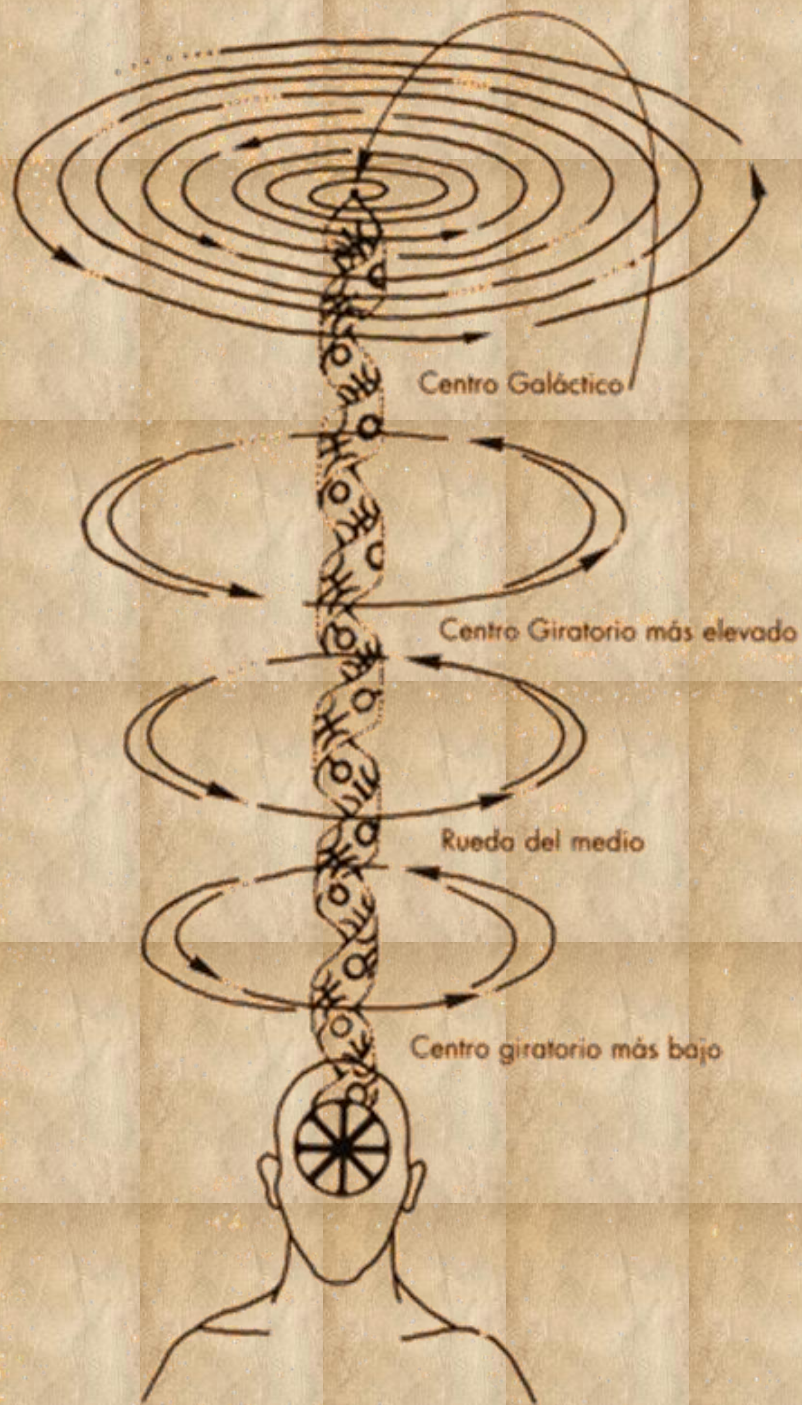 Centro Galáctico
Centro Giratorio más elevado
Rueda del medio
Centro giratorio más bajo